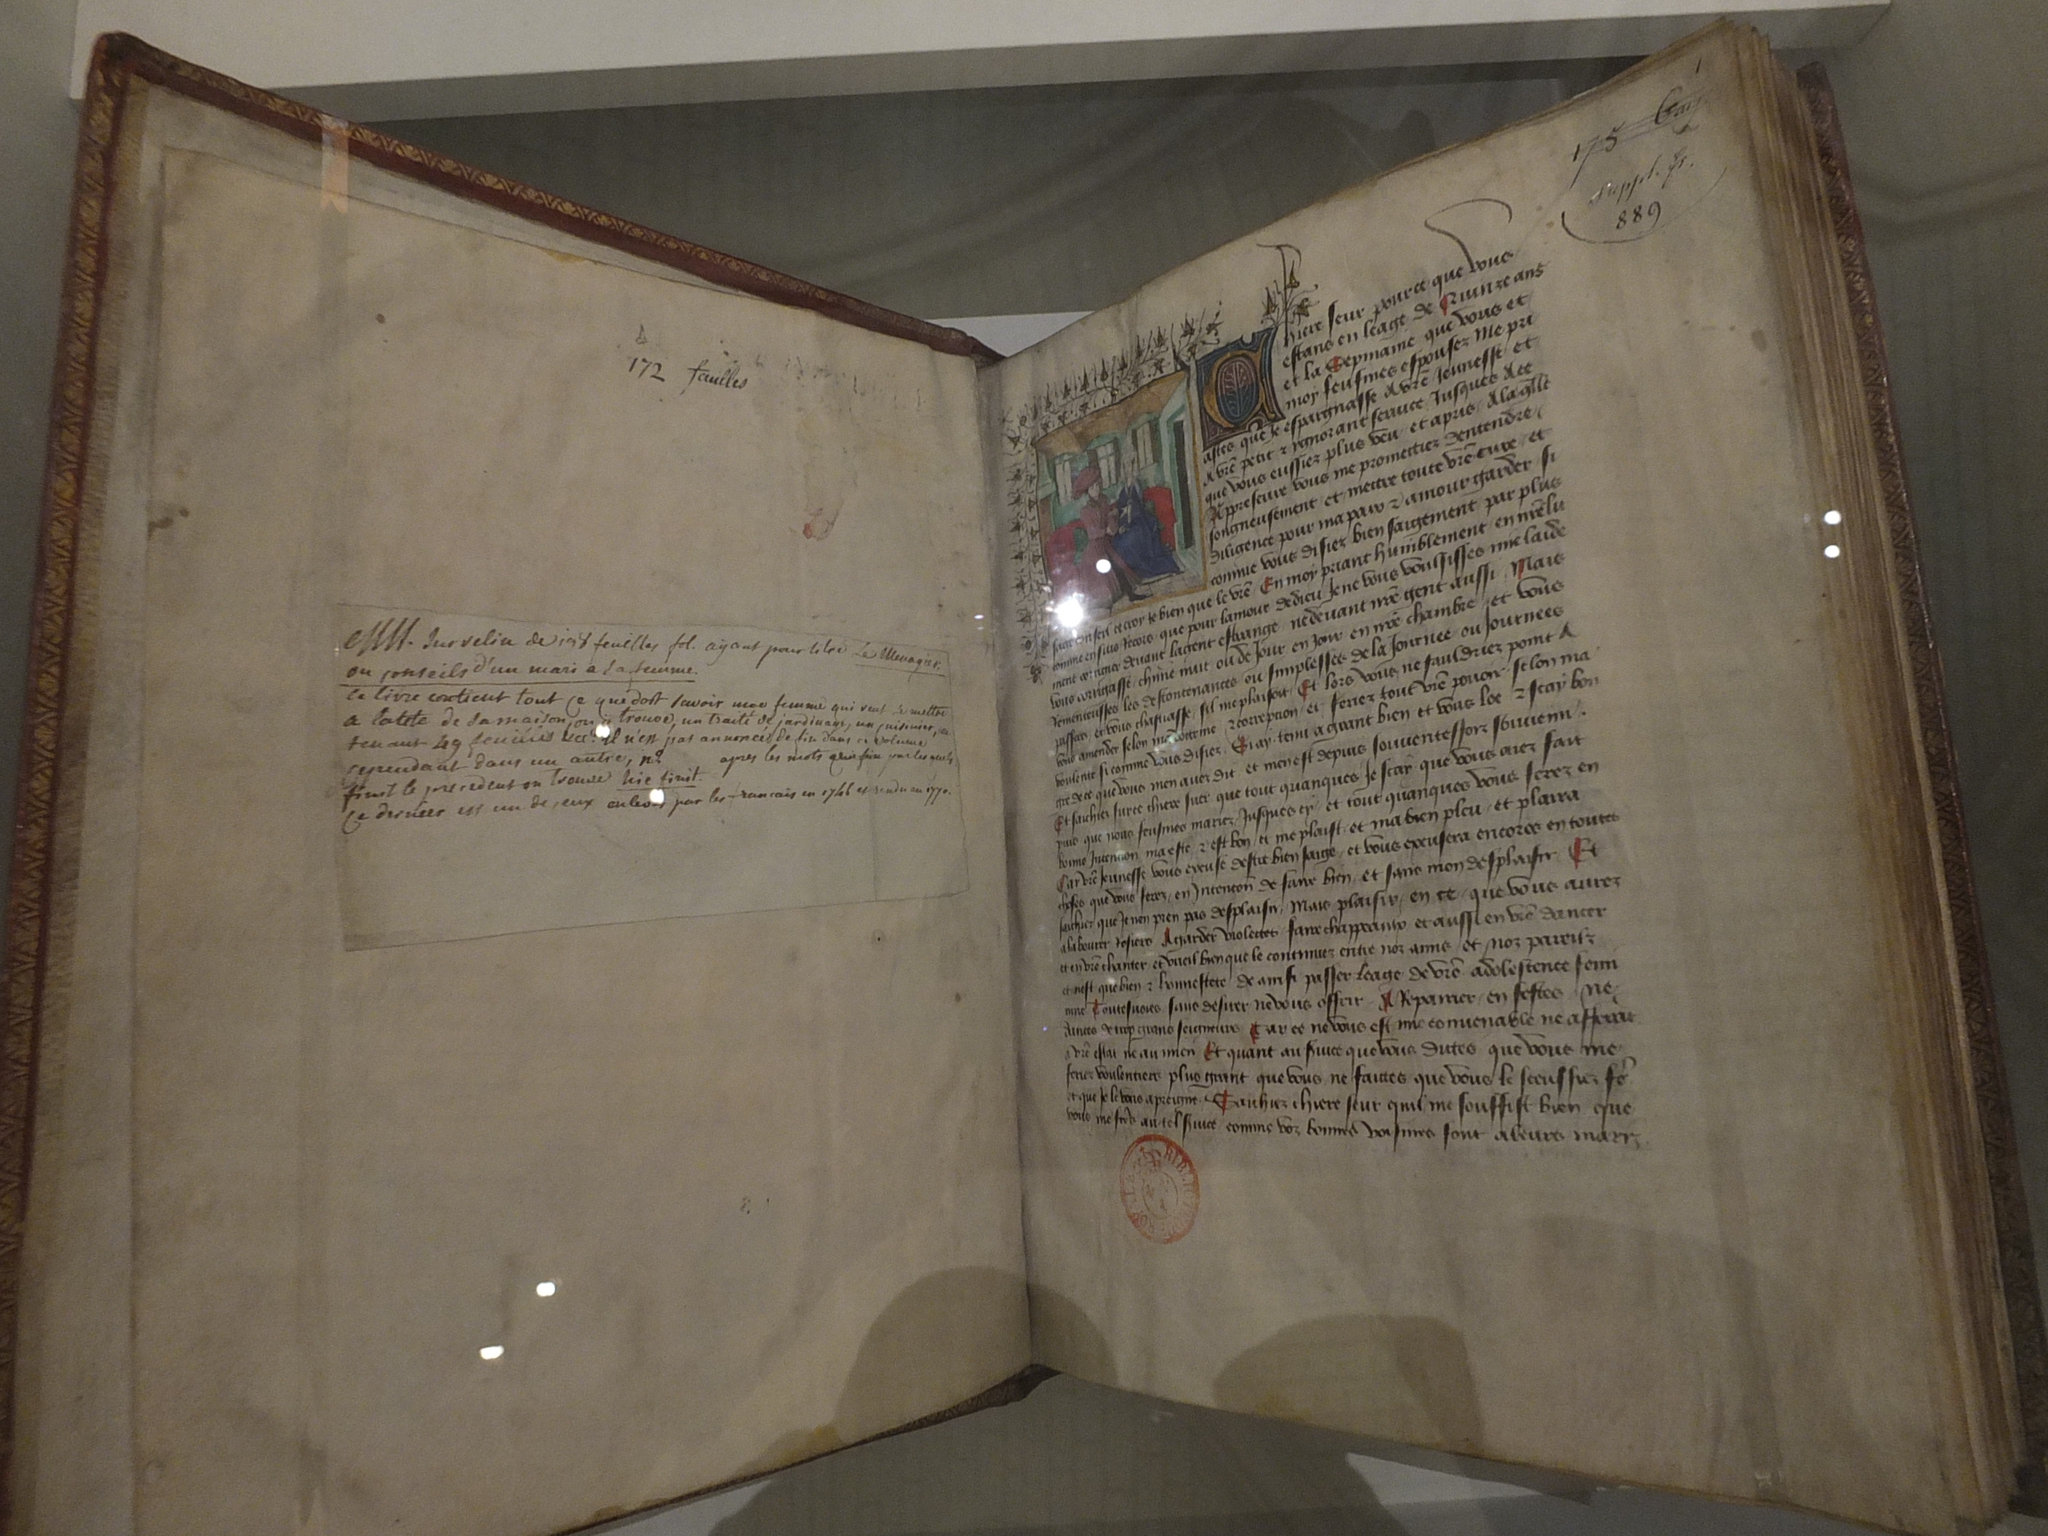 172 feuilles
MSS. Sur velin de 1 feuilles fol. ayant pour titre Le Menagier
ou conseils d'un mari a sa femme.
le livre contient tout ce que doit savoir une femme qui veut se mettre
a la tete de sa maison, on y trouve, un traité de jardinage, un cuisinier,
tenant 49 feuilles il n'est pas annoncé de fin dans ce volume
cependant dans un autre, nº apres les mots
finit le precedent on trouve
ce dernier est un de ceux enlevés par les francais en 1746 et rendu en 1770.
1
175
suppl. fr.
889
Chiere seur pource que vous
estans en leage de Quinze ans
et la sepmaine que vous et
moy feusmes espousez Me pri
astes que je espargnasse a vre Jeunesse et
a vre petit et ygnorant service Jusques a ce
que vous eussiez plus veu et apris A la qlle
Appresure vous me promettiez dentendre
songneusement et mettre toute vre cure et
diligence pour ma paix et amour garder si
comme vous disiez bien saigement par plus
saige conseil ce croy Je bien que le vre En moy priant humblement en nre lit
comme en suis recors que pour lamour de dieu Je ne vous voulsisses mie laide
ment corriger devant la gent estrange ne devant nre gent aussi Mais
vous corrigasse chune nuit ou de Jour en Jour en nre chambre et vous
ramenteusses les descontenances ou simplesses de la Journee ou Journees
passees et vous chastiasse sil me plaisoit Et lors vous ne fauldriez point A
vous amender selon ma doctrine et correption et feriez tout vre povoir selon ma
voulente si comme vous disiez Si ay tenu a grant bien et vous loe et scay bon
gre de ce que vous men avez dit et men est depuis souventesfoiz souvenu
Et saichiez sur ce chiere seur que tout quanques Je scay que vous avez fait
puis que nous feusmes mariez Jusques cy et tout quanques vous ferez en
bonne Intencion ma este et est bon et me plaist et ma bien pleu et plaira
Car vre Jeunesse vous excuse destre bien saige et vous excusera encores en toutes
choses que vous ferez en Intencon de faire bien et sans mon desplaisir Et
saichiez que Je nen pren pas desplaisir Mais plaisir en ce que vous aurez
a labourer rosiers A garder violettes faire chappeaux et aussi en vre dancer
et en vre chanter et vueil bien que le continuez entre noz amis et noz pareilz
et nest que bien et honnestete de ainsi passer leage de vre adolescence femi
nine Toutesvoies sans desirer ne vous offrir A Repairier en festes ne
dances de trop grans seigneurs Car ce ne vous est mie convenable ne afferant
a vre estat ne au mien Et quant au service que vous dites que vous me
feriez voulentiers plus grant que vous ne faites que vous le sceussiez fe
et que Je le vous apreigne Saichiez chiere seur quil me souffist bien que
vous me faites autel service comme voz bonnes voisines font a leurs mariz